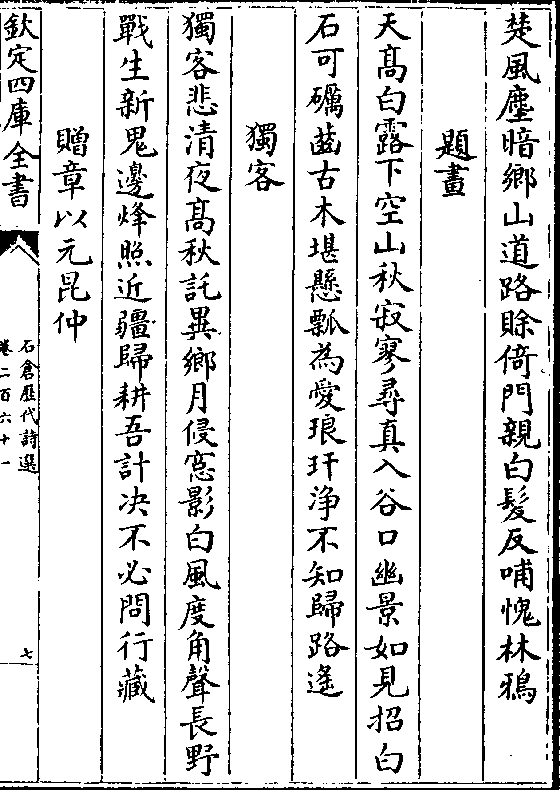 楚風塵暗鄉山道路賖倚門親白髮反哺愧林鴉
題畫
天髙白露下空山秋寂寥尋真入谷口幽景如見招白
石可礪齒古木堪懸瓢為愛琅玕浄不知歸路遙
獨客
獨客悲清夜髙秋託異鄉月侵窓影白風度角聲長野
戰生新鬼邊烽照近疆歸耕吾計决不必問行藏
贈章以元昆仲
欽定四庫全書
石倉歴代詩選
卷二百六十一
七